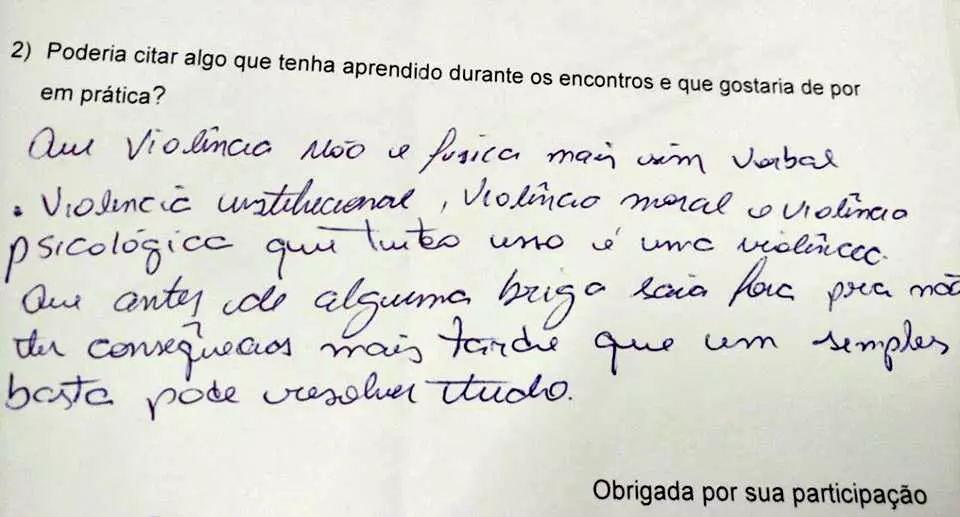 2) Poderia citar algo que tenha aprendido durante os encontros e que gostaria de por
em prática?
Que Violência não e fisica mais sim verbal
. Violencia institucional, violência moral e violência
psicológica que tudo isso é uma violência.
Que antes de alguma briga saia fora pra não
ter consequências mais tarde que um simples
basta pode resolver tudo.
Obrigada por sua participação